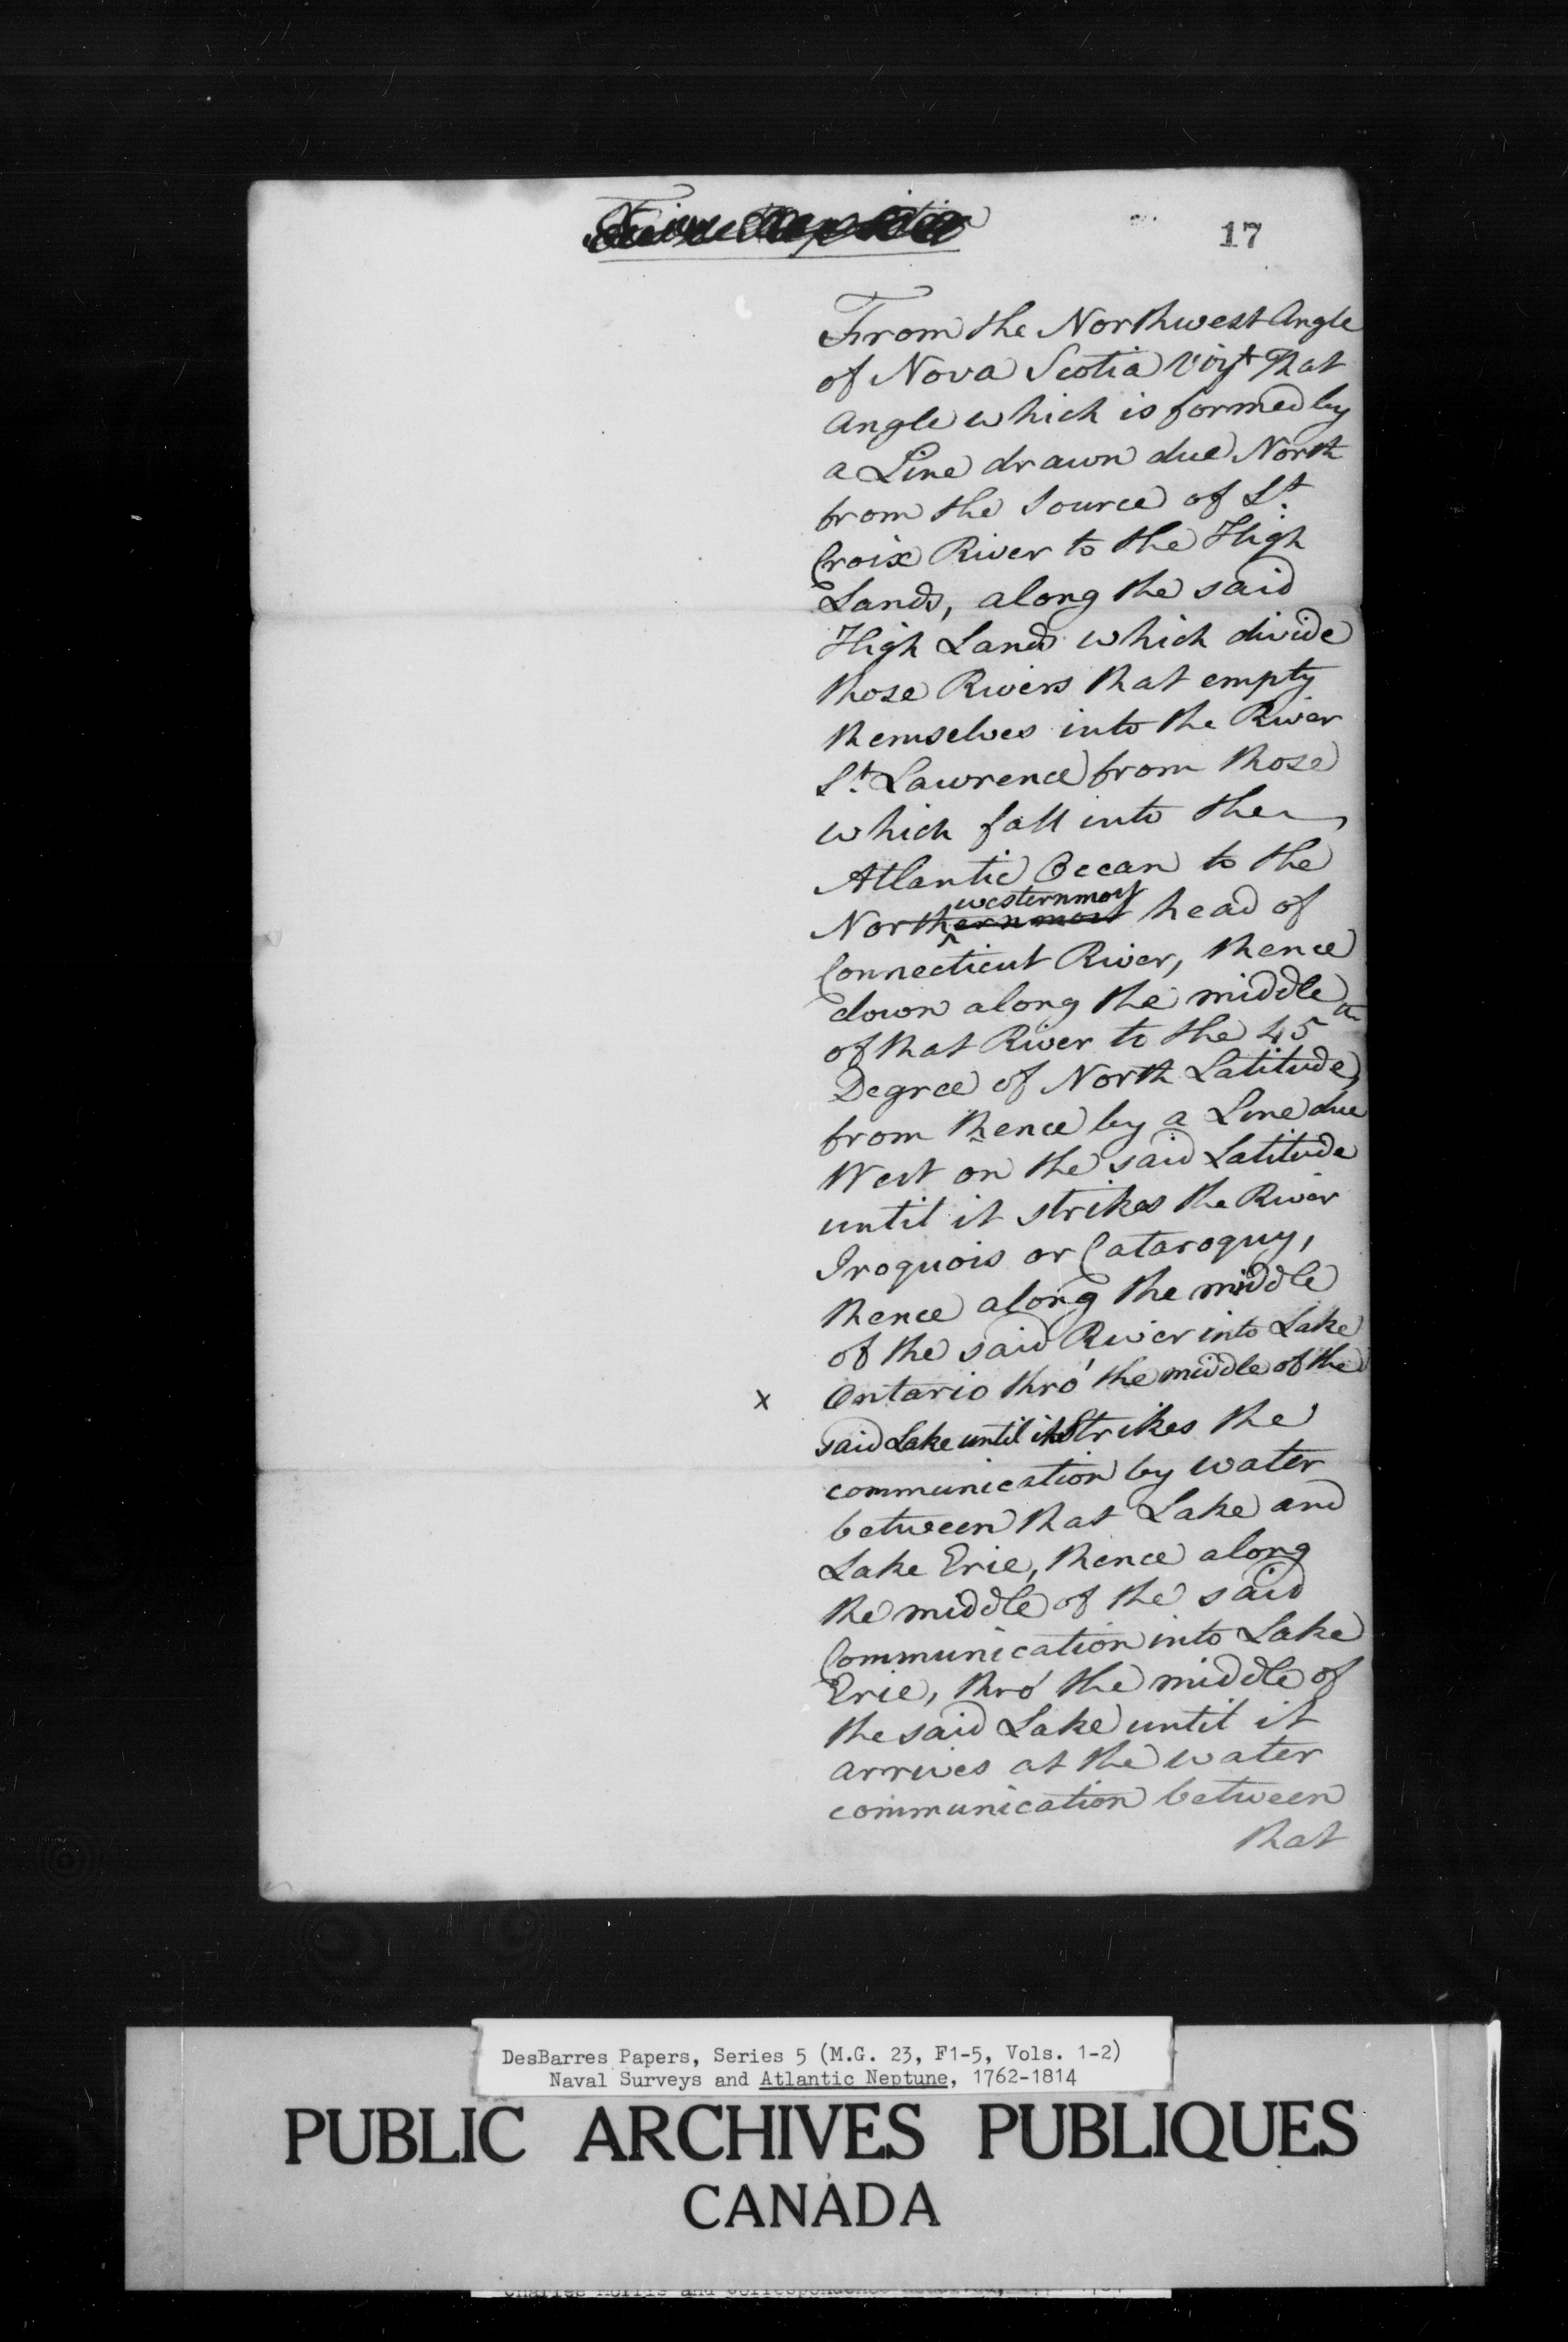 17
From the Northwest Angle
of Nova Scotia Vizt That
Angle which is formed by
a Line drawn due North
from the Source of St.
Croix River to the High
Lands, along the said
High Lands which divide
those Rivers that empty
themselves into the River
St. Lawrence from those
which fall into the
Atlantic Ocean to the
westernmost
Northernmost head of
Connecticut River, thence
down along the middle
of that River to the 45th
Degree of North Latitude,
from thence by a Line due
West on the said Latitude
until it strikes the River
Iroquois or Cataroquy,
thence along the middle
of the said River into Lake
x Ontario thro' the middle of the
said Lake until it Strikes the
communication by water
between that Lake and
Lake Erie, thence along
the middle of the said
Communication into Lake
Erie, thro' the middle of
the said Lake until it
arrives at the water
communication between
that
DesBarres Papers, Series 5 (M.G. 23, F1-5, Vols. 1-2)
Naval Surveys and Atlantic Neptune, 1762-1814
PUBLIC ARCHIVES PUBLIQUES
CANADA